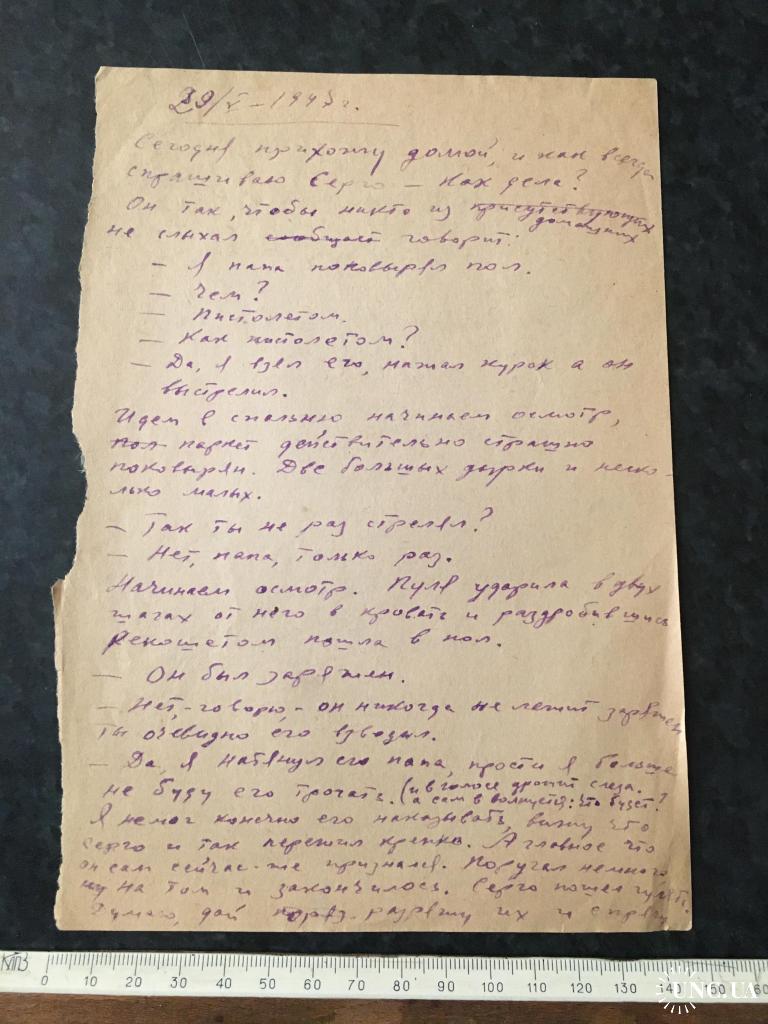 29/V – 1947 г.
Сегодня прихожу домой, и как всегда
спрашиваю Серго – Как дела?
Он так, чтобы никто из присутствующих
домашних
не слыхал сообщает говорит:
– Я папа поковырял пол.
– Чем?
– Пистолетом.
– Как пистолетом?
– Да, я взял его, нажал курок а он
выстрелил.
Идем в спальню начинаем осмотр,
пол паркет действительно страшно
поковырян. Две больших дырки и неско-
лько малых.
– Так ты не раз стрелял?
– Нет, папа, только раз.
Начинаем осмотр. Пуля ударила в двух
шагах от него в кровать и раздробившись
рекошетом пошла в пол.
– Он был заряжен.
– Нет, – говорю, – он никогда не лежит заряжен
ты очевидно его взводил.
– Да, я натянул его папа, прости я больше
не буду его трогать. (и в голосе дрожит слеза.
а сам волнуется: что будет?
Я не мог конечно его наказывать, вижу что
Серго и так пережил крепко. А главное что
он сам сейчас-же признался. Поругал немного
ну на том и закончилось. Серго пошел гулять.
Думаю, дай разряжу их и спрячу
КТПЗ
0 10 20 30 40 50 60 70 80 90 100 110 120 130 140 150 60
UNC.UA